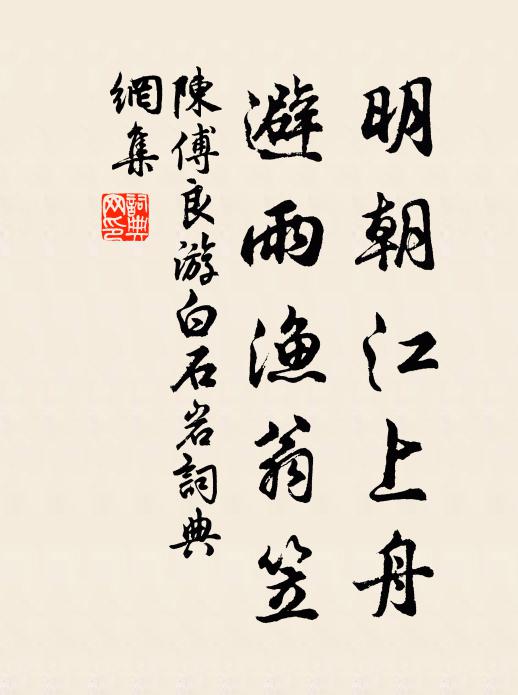 明朝江上舟
避雨漁翁笠
陳傅良游白石岩詞典
網集
詞典
网印